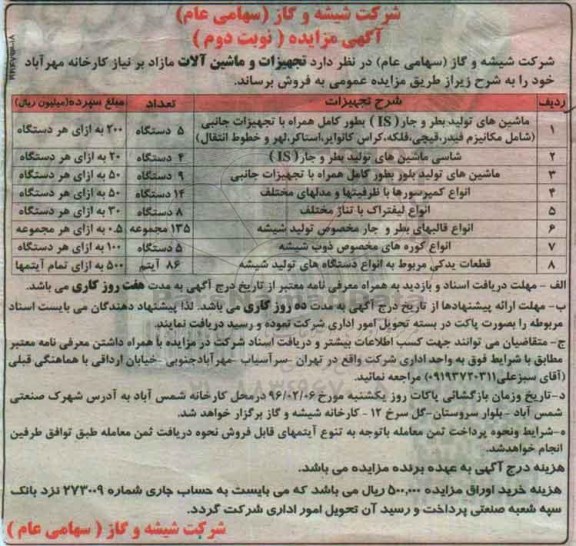 شرکت شیشه و گاز (سهامی عام)
آگهی مزایده ( نوبت دوم )
شرکت شیشه و گاز (سهامی عام) در نظر دارد تجهیزات و ماشین آلات مازاد بر نیاز کارخانه مهرآباد
خود را به شرح زیراز طریق مزایده عمومی به فروش برساند.
ردیف شرح تجهیزات تعداد مبلغ سپرده(میلیون ریال)
۱ ماشین های تولید بطر و جار( IS ) بطور کامل همراه با تجهیزات جانبی (شامل مکانیزم فیدر،قیچی،فلکه،کراس کانوایر،استاکر،لهر و خطوط انتقال) ۵ دستگاه ۲۰۰ به ازای هر دستگاه
۲ شاسی ماشین های تولید بطر و جار( IS ) ۴ دستگاه ۲۰ به ازای هر دستگاه
۳ ماشین های تولید بلور بطور کامل همراه با تجهیزات جانبی ۹ دستگاه ۵۰ به ازای هر دستگاه
۴ انواع کمپرسورها با ظرفیتها و مدلهای مختلف ۱۴ دستگاه ۵۰ به ازای هر دستگاه
۵ انواع لیفتراک با تناژ مختلف ۸ دستگاه ۳۰ به ازای هر دستگاه
۶ انواع قالبهای بطر و جار مخصوص تولید شیشه ۱۳۵ مجموعه ۰.۵ به ازای هر مجموعه
۷ انواع کوره های مخصوص ذوب شیشه ۵ دستگاه ۱۰۰ به ازای هر دستگاه
۸ قطعات یدکی مربوط به انواع دستگاه های تولید شیشه ۸۶ آیتم ۵۰۰ به ازای تمام آیتمها
الف - مهلت دریافت اسناد و بازدید به همراه معرفی نامه معتبر از تاریخ درج آگهی به مدت هفت روز کاری می باشد.
ب- مهلت ارائه پیشنهادها از تاریخ درج آگهی به مدت ده روز کاری می باشد. لذا پیشنهاد دهندگان می بایست اسناد
مربوطه را بصورت پاکت در بسته تحویل امور اداری شرکت نموده و رسید دریافت نمایند.
ج- متقاضیان می توانند جهت کسب اطلاعات بیشتر و دریافت اسناد شرکت در مزایده با همراه داشتن معرفی نامه معتبر
مطابق با شرایط فوق به واحد اداری شرکت واقع در تهران -سرآسیاب -مهرآبادجنوبی -خیابان ارداقی با هماهنگی قبلی
(آقای سبزعلی۰۹۱۹۳۷۲۰۳۱۱) مراجعه نمائید.
د-تاریخ وزمان بازگشائی پاکات روز یکشنبه مورخ ۹۶/۰۲/۰۶ درمحل کارخانه شمس آباد به آدرس شهرک صنعتی
شمس آباد - بلوار سروستان-گل سرخ ۱۲ - کارخانه شیشه و گاز برگزار خواهد شد.
ه-شرایط ونحوه پرداخت ثمن معامله باتوجه به تنوع آیتمهای قابل فروش نحوه دریافت ثمن معامله طبق توافق طرفین
انجام خواهدشد.
هزینه درج آگهی به عهده برنده مزایده می باشد.
هزینه خرید اوراق مزایده ۵۰۰,۰۰۰ ریال می باشد که می بایست به حساب جاری شماره ۲۷۳۰۰۹ نزد بانک
سپه شعبه صنعتی پرداخت و رسید آن تحویل امور اداری شرکت گردد.
شرکت شیشه و گاز ( سهامی عام )